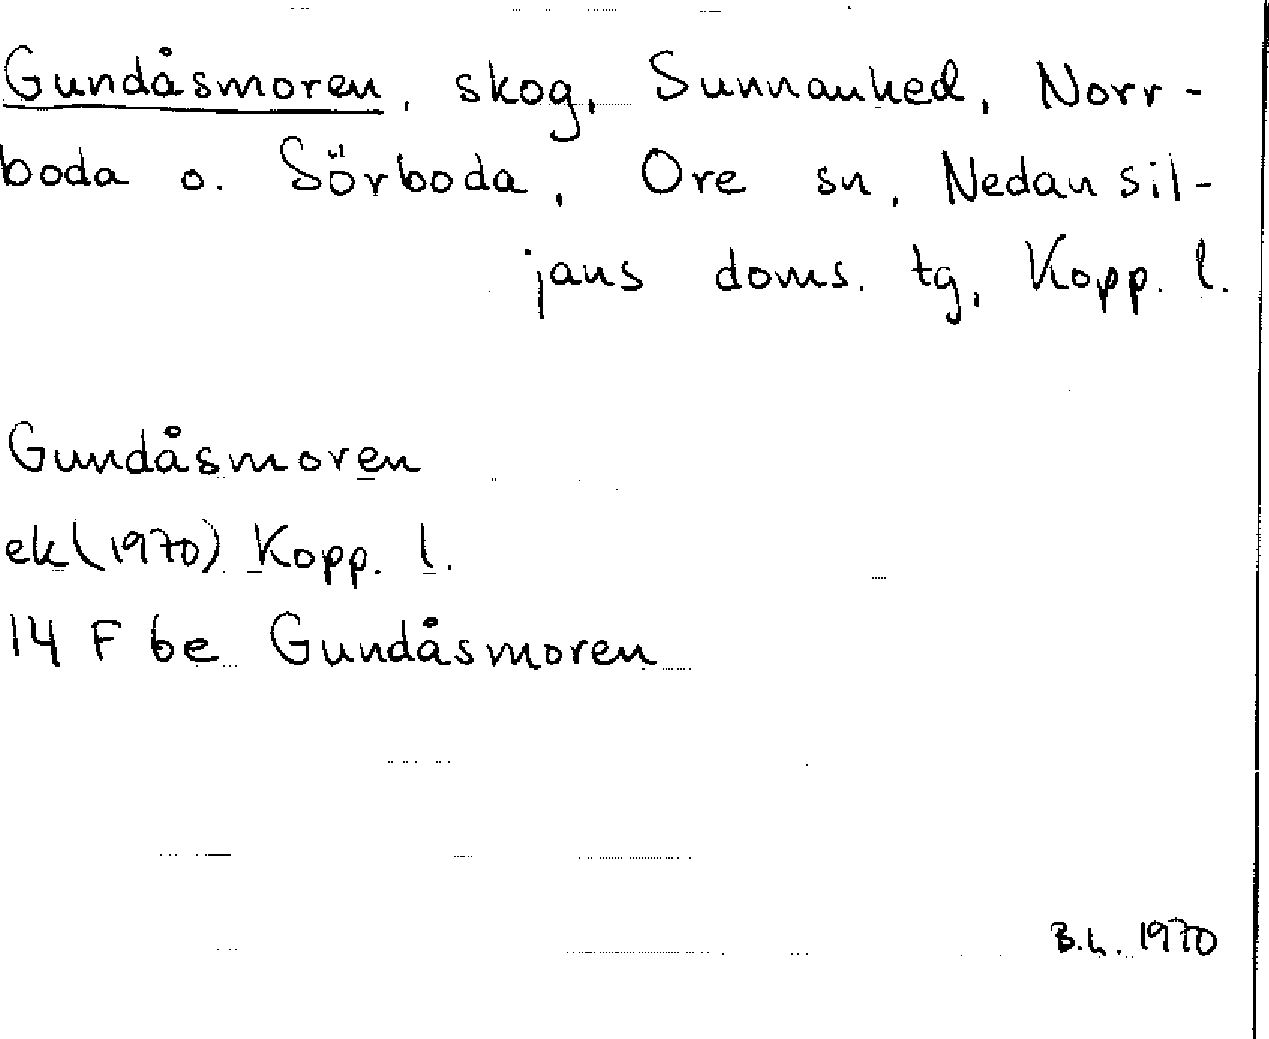 Gundåsmoren, skog, Sunnanhed, Norr-
boda o. Sörboda, Ore sn, Nedansil-
jans doms. tg, Kopp. l.
Gundåsmoren
ek (1970) Kopp. l.
14 F 6e Gundåsmoren
B.L. 1970